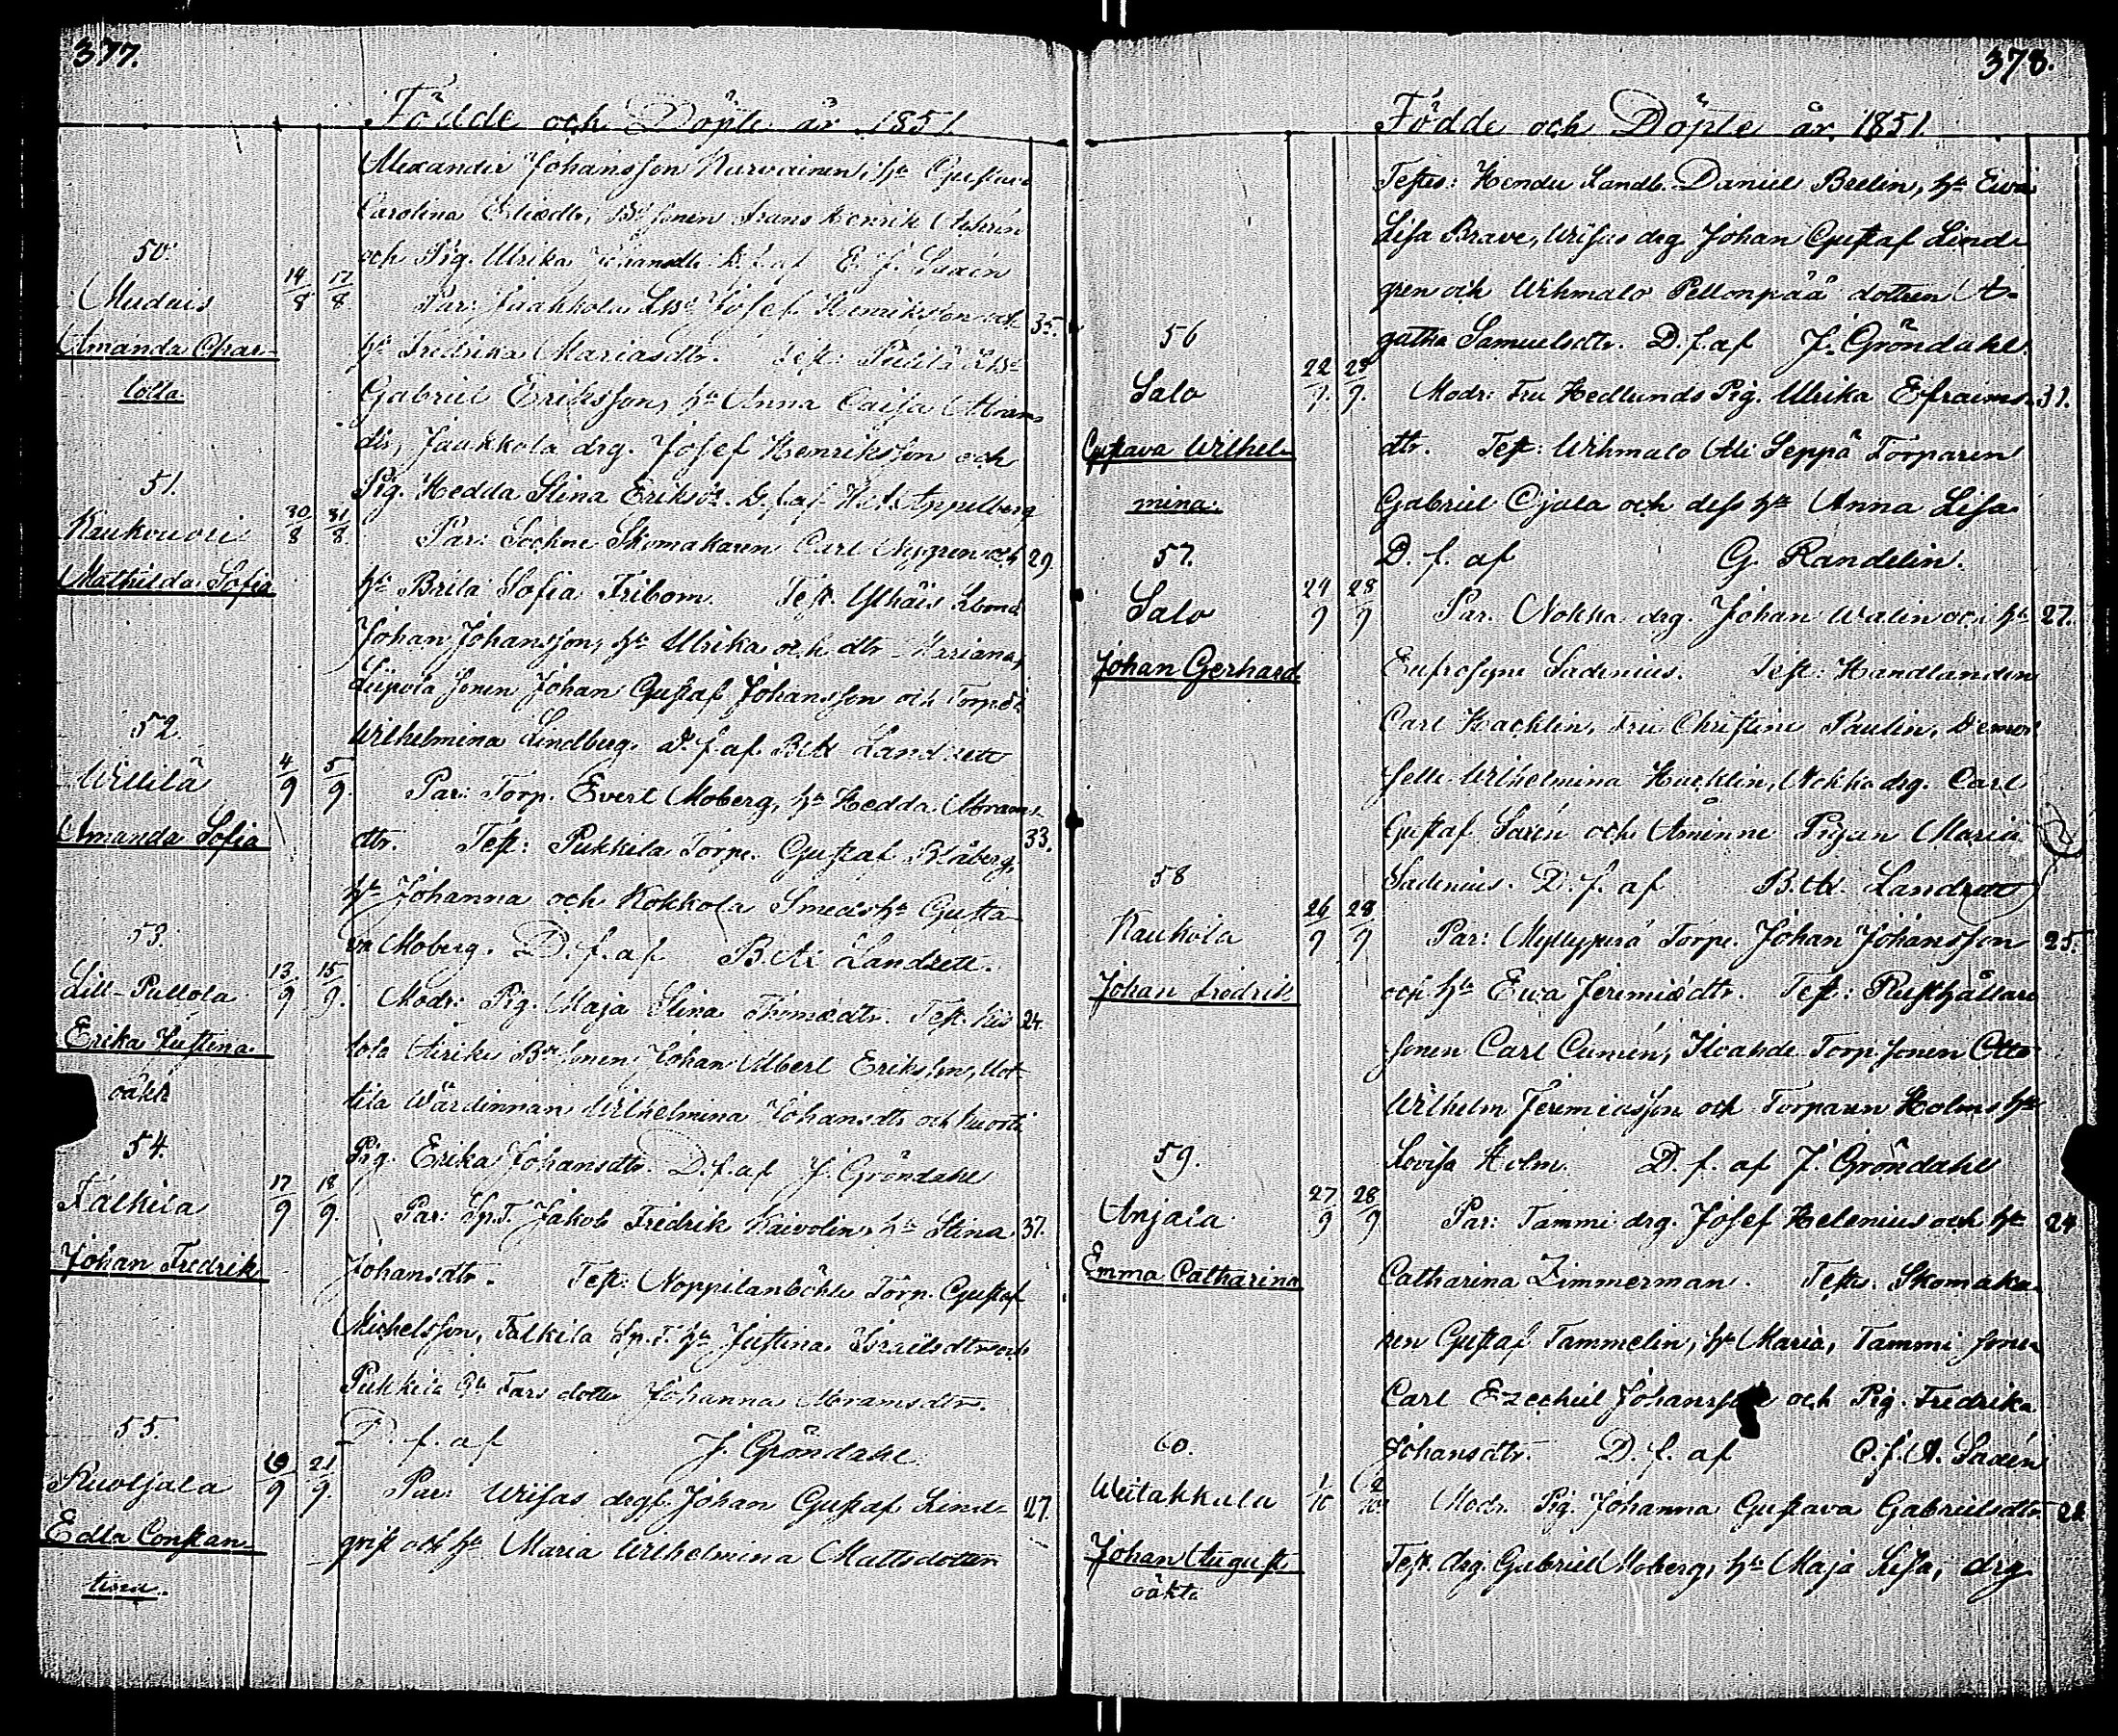 377.
Födde och Döpte år 1851
Alexander Johansson Kurvainen, hu Gustava
Carolina Ericsdtr, Bd sonen Frans Henrik
och Pig. Ulrika Johansdtr D. f. af E. J. Saxén
50.
14/8 17/8
Par: Jaakkola Josef Henriksson och 35.
Amanda Char-
hu Fredrika Mariasdtr. Test:
lotta.
Gabriel Eriksson, hu Anna Caisa Abrams
dtr, Jaakkola drg. Josef Henriksson och
51.
Pig. Hedda Stina Eriksdr. D. f. af Appelberg
30/8 31/8
Par: Sockne Skomakaren Carl Nygren och 29.
Mathilda Sofia
hu Brita Sofia Fribom. Test.
Johan Johansson, hu Ulrika och dtr Mariana,
sonen Johan Gustaf Johansson och
52.
Wilhelmina Lindberg. D. f. af Landzett
Willilä
4/9 5/9
Par: Torp. Evert Moberg, hu Hedda Abrams-
Amanda Sofia
dtr. Test: Pukkila Torp. Gustaf Blåberg, 33.
hu Johanna och Kokkola Smeds hu Gusta-
53.
va Moberg. D. f. af Landzett.
Lill-Pullola
13/9 15/9
Modr: Pig. Maja Stina Thomædtr. Test. 24.
Erika Justina
sonen Johan Albert Eriksson,
oäkta
Wärdinnan Wilhelmina Johansdtr och
54.
Pig. Erika Johansdtr. D. f. af J. Gröndahl
Falkila
17/9 18/9
Par: Sp.T. Jakob Fredrik Kaivolin, hu Stina 37.
Johan Fredrik
Johansdtr. Test: Noppilanböhle Torp. Gustaf
Michelsson, Falkila Sp.T. hu Justina Israelsdtr och
Pukkila dotter Johanna Abramsdtr.
55.
D. f. af J. Gröndahl
Ruotjala
21/9
Par: Wrisas drg. Johan Gustaf Lind- 27.
Edla Constan-
qvist och hu Maria Wilhelmina Mattsdotter
tina.
378.
Födde och Döpte år 1851.
Testes: Handl. Daniel Brelin, hu Ewa
Lisa Brave, Wrisas drg Johan Gustaf Lind-
gren och Wihmalo Pellonpää dottren A-
56
gatha Samuelsdtr. D. f. af J. Gröndahl.
Salo
22/9 23/9
Modr: Fru Hedlunds Pig. Ulrika Efraims- 31.
Gustava Wilhel-
dtr. Test: Wihmalo Ali Seppä Torparen
mina.
Gabriel Ojala och dess hu Anna Lisa
57.
D. f. af G. Randelin.
Salo
24/9 28/9
Par. Nokka drg. Johan Walin och hu 27.
Johan Gerhard
Eufrosyne Sadenius. Test: Handlanden
Carl Hacklin, Fru Christine Paulin, Demoi-
selle Wilhelmina Hacklin, Nokka drg. Carl
Gustaf Sarén och Åminne Pigan Maria
58
Sadenius. D. f. af Landzett
Kaukola
26/9 28/9
Par: Myllyperä Torp. Johan Johansson 25.
Johan Fredrik
och hu Ewa Jeremiædtr. Test: Rusthållare
sonen Carl Cumén, Torp. sonen Otto
Wilhelm Jeremiasson och Torparen Holms hu
59.
Lovisa Holm. D. f. af J. Gröndahl
Anjala
27/9 28/9
Par: Tammi drg. Josef Helenius och hu 24
Emma Catharina
Catharina Zimmerman. Testes. Skomaka-
ren Gustaf Tammelin, hu Maria, Tammi sonen
Carl Ezechiel Johansson och Pig. Fredrika
60.
Johansdtr. D. f. af Saxén
Weitakkala
1/10 2/10
Modr. Pig. Johanna Gustava Gabrielsdtr 22
Johan August
Test. drg. Gabriel Moberg, hu Maja Lisa, drg
oäkta